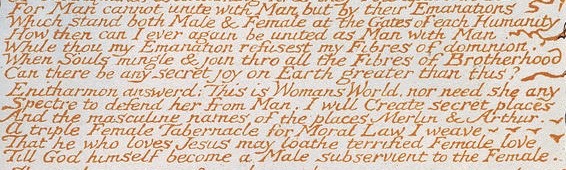 For Man cannot unite with Man but by their Emanations
Which stand both Male & Female at the Gates of each Humanity
How then can I ever again be united as Man with Man
While thou my Emanation refusest my Fibres of dominion.
When Souls mingle & join thro all the Fibres of Brotherhood
Can there be any secret joy on Earth greater than this?
Enitharmon answerd: This is Womans World, nor need she any
Spectre to defend her from Man. I will Create secret places
And the masculine names of the places Merlin & Arthur.
A triple Female Tabernacle for Moral Law I weave
That he who loves Jesus may loathe terrified Female love
Till God himself become a Male subservient to the Female.